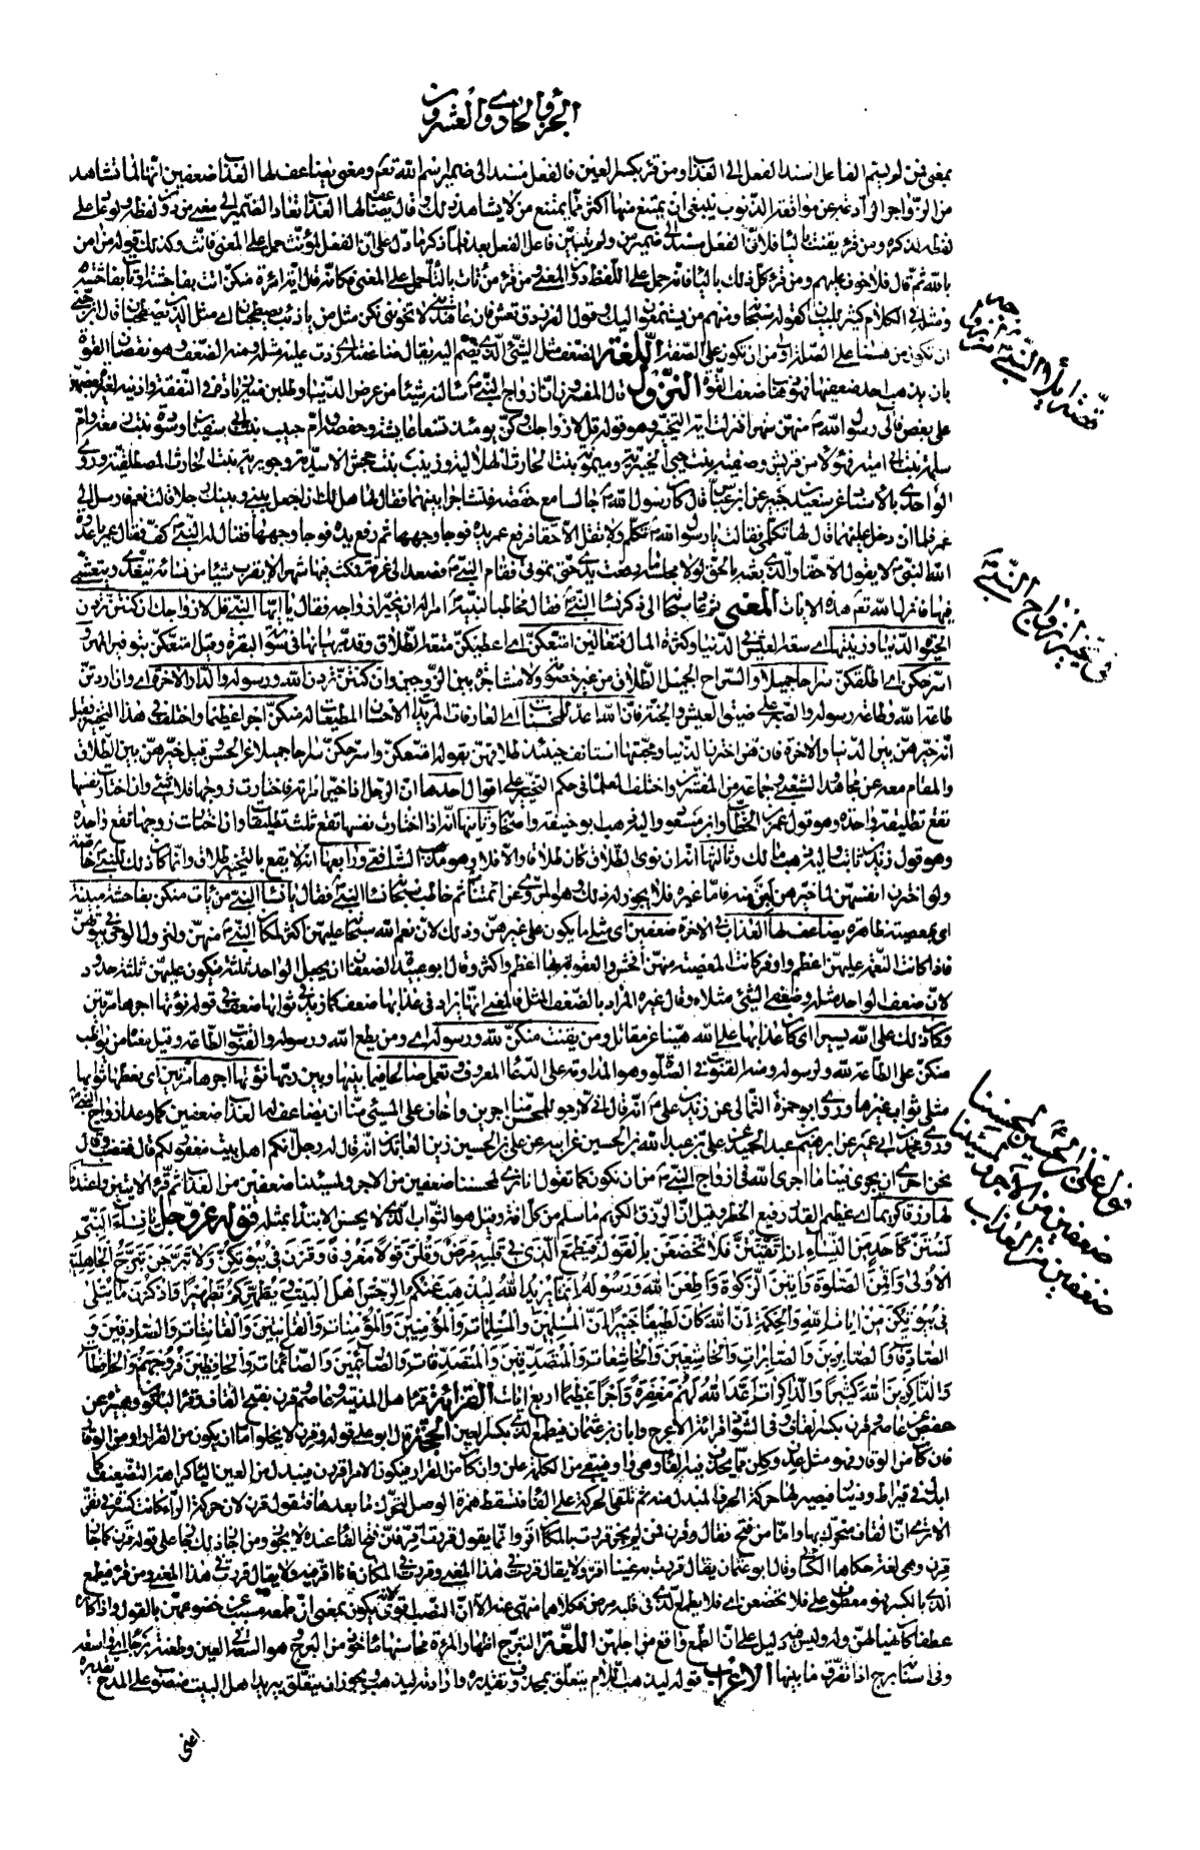 الجزو الحادي والعشرون
بمعنى فمن لم يسم الفاعل اسند الفعل الى العذاب ومن قرء بكسر العين فالفعل مسند الى ضمير اسم الله تعم ومعنى يضاعف لها العذاب ضعفين انها لما تشاهد
من الزواجر الرادعة عن مواقعة الذنوب ينبغي ان يمتنع منها اكثر مما يمتنع من لا يشاهد ذلك وقال يضاعف لها العذاب فعاد الضمير الى معنى من دون لفظه ولو عاد على
لفظه لذكره ومن قرء يقنت بالياء فلان الفعل مسند الى ضمير من ولم يتبين فاعل الفعل بعد فلما ذكر ما دل على ان الفعل لمؤنث حمل على المعنى فانث وكذلك قوله من امن
بالله ثم قال فلا خوف عليهم ومن قرء كل ذلك بالياء فانه حمل على اللفظ دون المعنى ومن قرء من تات بالتاء حمل على المعنى فكانه قال اية امراة منكن اتت بفاحشة او تات بفاحشة
ومثله في الكلام كثير للبيان كقوله سبحانه ومنهم من يستمعون اليك وقول الفرزدق تعش فان عاهدتني لا تخونني نكن مثل من يا ذئب يصطحبان اي مثل الذين يصطحبان قال
ان تكون من هنا على الصلة اولى من ان تكون على الصفة اللغة الضعف مثل الشئ الذي يضم اليه يقال ضاعفته اي زدت عليه مثله ومنه الضعف وهو نقصان القوة
بان يذهب احد ضعفيها فهو ذهاب ضعف القوة النزول قال المفسرون ان ازواج النبي ص سالنه شيئا من عرض الدنيا وطلبن منه زيادة في النفقة واذينه لغيرة بعضهن
على بعض فالى رسول الله ص منهن شهرا فنزلت اية التخيير وهو قوله قل لازواجك وكن يومئذ تسعا عايشة وحفصة وام حبيب بنت ابي سفيان وسودة بنت زمعة وام
سلمة بنت ابي امية فهؤلاء من قريش وصفية بنت حيي الخيبرية وميمونة بنت الحارث الهلالية وزينب بنت جحش الاسدية وجويرية بنت الحارث المصطلقية وروى
الواحدي بالاسناد عن سعيد بن جبير عن ابن عباس قال كان رسول الله ص جالسا مع حفصة فتشاجرا بينهما فقال لها هل لك ان اجعل بيني وبينك رجلا قالت نعم فارسل الى
عمر فلما ان دخل عليهما قال لها تكلمي فقالت يا رسول الله ص تكلم ولا تقل الا حقا فرفع عمر يده فوجا وجهها ثم رفع يده فوجا وجهها فقال له النبي ص كف فقال عمر يا عدوة
الله النبي لا يقول الا حقا والذي بعثه بالحق لولا مجلسه ما رفعت يدي حتى تموتي فقام النبي ص فصعد الى غرفة فمكث فيها شهرا لا يقرب شيئا من نسائه يتغدى ويتعشى
فيها فانزل الله تعم هذه الايات المعنى ثم عاد سبحانه الى ذكر نساء النبي ص فقال مخاطبا لنبيه ص امرا له ان يخير ازواجه فقال يا ايها النبي قل لازواجك ان كنتن تردن
الحيوة الدنيا وزينتها اي سعة العيش في الدنيا وكثرة المال فتعالين امتعكن اي اعطيكن متعة الطلاق وقد مر بيانها في سورة البقرة وقيل امتعكن بتوفير المهر و
اسرحكن اي اطلقكن سراحا جميلا والسراح الجميل الطلاق من غير خصومة ولا مشاجرة بين الزوجين وان كنتن تردن الله ورسوله والدار الاخرة اي وان اردتن
طاعة الله وطاعة رسوله والصبر على ضيق العيش والجنة فان الله اعد للمحسنات اي العارفات المريدات الاحسان المطيعات له منكن اجرا عظيما واختلف في هذا التخيير فقيل
انه خيرهن بين الدنيا والاخرة فان هن اخترن الدنيا ومحبتها استانف حينئذ طلاقهن بقوله امتعكن واسرحكن سراحا جميلا عن الحسن وقيل خيرهن بين الطلاق
والمقام معه عن مجاهد والشعبي وجماعة من المفسرين واختلف العلماء في حكم التخيير على اقوال احدها ان الرجل اذا خير امراته فاختارت زوجها فلا شئ وان اختارت نفسها
تقع تطليقة واحدة وهو قول عمر بن الخطاب وابن مسعود واليه ذهب ابو حنيفة واصحابه وثانيها انه اذا اختارت نفسها تقع ثلث تطليقات وان اختارت زوجها تقع واحدة
وهو قول زيد بن ثابت واليه ذهب مالك وثالثها انه ان نوى الطلاق كان طلاقا والا فلا وهو مذهب الشافعي ورابعها انه لا يقع بالتخيير طلاق وانما كان ذلك للنبي ص خاصة
ولو اخترن انفسهن لما خيرهن لبن منه فاما غيره فلا يجوز له ذلك وهو المروي عن ائمتنا ثم خاطب سبحانه نساء النبي ص فقال يا نساء النبي من يات منكن بفاحشة مبينة
اي بمعصية ظاهرة يضاعف لها العذاب في الاخرة ضعفين اي مثلي ما يكون على غيرهن وذلك لان نعم الله سبحانه عليهن اكثر لمكان النبي ص منهن ولنزول الوحي في بيوتهن
فاذا كانت النعمة عليهن اعظم واوفر كانت المعصية منهن افحش والعقوبة بها اعظم واكثر وقال ابو عبيدة الضعفان ان يجعل الواحد ثلثة فيكون عليهن ثلثة حدود
لان ضعف الواحد مثله وضعفي الشئ مثلاه وقال غيره المراد بالضعف المثل فالمعنى انها يزاد في عذابها ضعف كما زيد في ثوابها ضعف في قوله نؤتها اجرها مرتين
وكان ذلك على الله يسيرا اي كان عذابها على الله هينا عن مقاتل ومن يقنت منكن لله ورسوله اي ومن يطع الله ورسوله والقنوت الطاعة وقيل معناه من يواظب
منكن على الطاعة لله ولرسوله ومنه القنوت في الصلوة وهو المداومة على الدعاء المعروف وتعمل صالحا فيما بينها وبين ربها نؤتها اجرها مرتين اي نعطها ثوابها
مثلي ثواب غيرها وروى ابو حمزة الثمالي عن زيد بن علي ع انه قال اني لارجو للمحسن منا اجرين واخاف على المسيئ منا ان يضاعف له العذاب ضعفين كما وعد ازواج النبي ص
وروى محمد بن ابي عمير عن ابرهيم بن عبد الحميد عن علي بن عبد الله بن الحسين عن ابيه عن علي بن الحسين زين العابدين انه قال له رجل انكم اهل بيت مغفور لكم قال فغضب وقال
نحن احرى ان يجري فينا ما اجرى الله في ازواج النبي ص من ان نكون كما تقول انا نرى لمحسننا ضعفين من الاجر ولمسيئنا ضعفين من العذاب ثم قرء الايتين واعتدنا
لها رزقا كريما اي عظيم القدر رفيع الخطر وقيل ان الرزق الكريم ما سلم من كل افة وقيل هو الثواب الذي لا يحسن الابتداء بمثله قوله عز وجل يا نساء النبي
لستن كاحد من النساء ان اتقيتن فلا تخضعن بالقول فيطمع الذي في قلبه مرض وقلن قولا معروفا وقرن في بيوتكن ولا تبرجن تبرج الجاهلية
الاولى واقمن الصلوة واتين الزكوة واطعن الله ورسوله انما يريد الله ليذهب عنكم الرجس اهل البيت ويطهركم تطهيرا واذكرن ما يتلى
في بيوتكن من ايات الله والحكمة ان الله كان لطيفا خبيرا ان المسلمين والمسلمات والمؤمنين والمؤمنات والقانتين والقانتات والصادقين و
الصادقات والصابرين والصابرات والخاشعين والخاشعات والمتصدقين والمتصدقات والصائمين والصائمات والحافظين فروجهم والحافظات
والذاكرين الله كثيرا والذاكرات اعد الله لهم مغفرة واجرا عظيما اربع ايات القرائة قرء اهل المدينة وعاصم وقرن بفتح القاف وقرء الباقون وهبيرة عن
حفص عن عاصم وقرن بكسر القاف وفي الشواذ قرائة الاعرج وابان بن عثمان فيطمع الذي بكسر العين الحجة قال ابو علي قوله وقرن لا يخلو اما ان يكون من القرار او من الوقار
فان كان من الوقار فهو مثل عدن وكلن مما يحذف فيه الفاء وهي واو فيبقى من الكلمة علن وان كان من القرار فيكون الامر اقررن فيبدل من العين الياء كراهة التضعيف كما
ابدل في قيراط ودينار فيصير لها حركة الحرف المبدل منه ثم تلقى الحركة على الفاء فتسقط همزة الوصل لتحرك ما بعدها فتقول قرن لان حركة الراء كانت كسرة في تقر
الا ترى ان القاف متحركة بها واما من فتح فقال وقرن فمن لم يجز قررت بالمكان اقر وانما يقول قررت اقر فان فتح الفاء عنده لا يجوز ومن اجاز ذلك جاز على قوله قرن كما جاز
قرن وهي لغة حكاها الكسائي وقال ابو عثمان يقال قررت به عينا اقر ولا يقال قررت في هذا المعنى وقررت في المكان فانا اقر فيه ولا يقال قررت في هذا المعنى ومن قرء فيطمع
الذي بالكسر فهو معطوف على فلا تخضعن اي فلا يطمع الذي في قلبه مرض فكلاهما منهي عنه الا ان النصب اقوى لانه يكون بمعنى ان طمعه مسبب عن خضوعهن بالقول واذا كان
عطفا كان نهيا لهن وله وليس فيه دليل على ان الطمع واقع من اجلهن اللغة التبرج اظهار المرءة محاسنها ماخوذ من البرج وهو السعة في العين وطعنة برجاء اي واسعة
وفي اسنانه برج اذا تفرق ما بينها الاعراب قوله ليذهب اللام يتعلق بمحذوف تقديره وارادته ليذهب ويجوز ان يتعلق بيريد اهل البيت منصوب على المدح تقديره
اعني
قصة ايلاء النبي ص
في تخيير ازواج النبي ص
قول علي بن الحسين ع لمحسننا
ضعفين من الاجر ولمسيئنا
ضعفين من العذاب